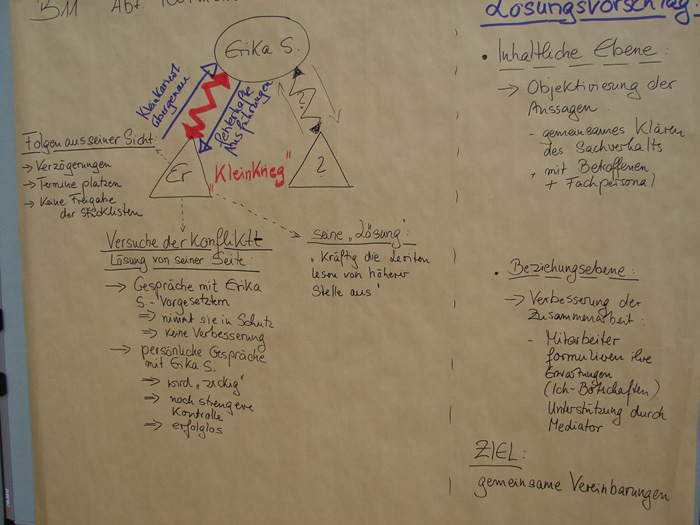 B11 Abt.
Erika S.
Kleinkariert
übergenau
fehlerhafte
Ausführungen
Folgen aus seiner Sicht
→ Verzögerungen
→ Termine platzen
→ Keine Freigabe
der Stücklisten
Er
"Kleinkrieg"
?
?
Versuche der Konflikt-
Lösung von seiner Seite:
→ Gespräche mit Erika
S.-Vorgesetztem
⇒ nimmt sie in Schutz
⇒ keine Verbesserung
→ persönliche Gespräche
mit Erika S.
⇒ wird „zickig"
⇒ noch strengere
Kontrolle
⇒ erfolglos
seine „Lösung":
„Kräftig die Leviten
lesen von höherer
Stelle aus"
Lösungsvorschlag:
• Inhaltliche Ebene:
→ Objektivierung der
Aussagen
- gemeinsames Klären
des Sachverhalts
+ mit Betroffenen
+ Fachpersonal
• Beziehungsebene:
→ Verbesserung der
Zusammenarbeit:
- Mitarbeiter
formulieren ihre
Erwartungen
(Ich-Botschaften)
Unterstützung durch
Mediator
ZIEL:
gemeinsame Vereinbarungen